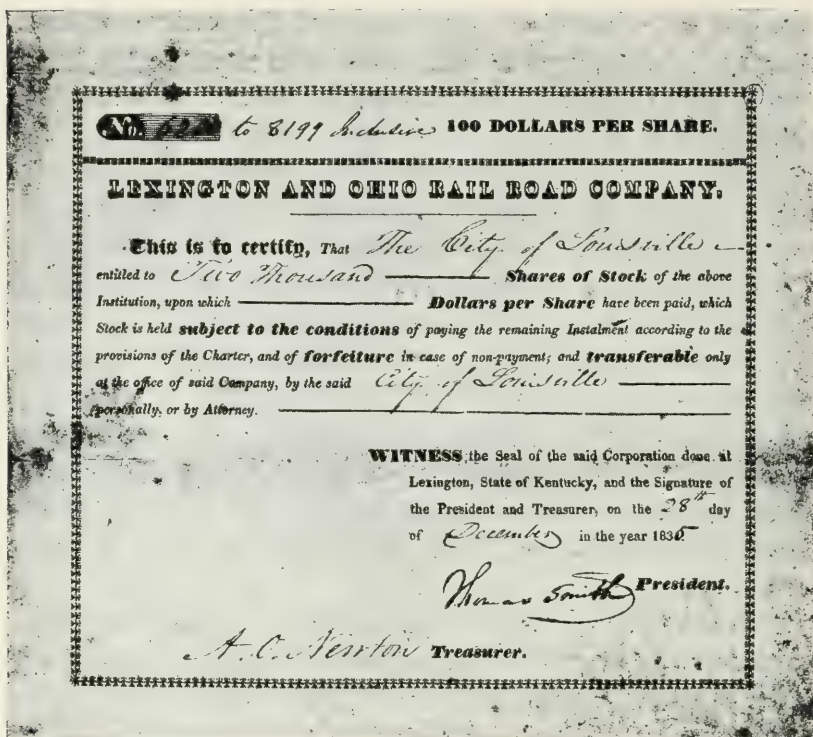 No. to 8199 Inclusive 100 DOLLARS PER SHARE.
LEXINGTON AND OHIO RAIL ROAD COMPANY.
This is to certify, That The City of Louisville
entitled to Two Thousand Shares of Stock of the above
Institution, upon which Dollars per Share have been paid, which
Stock is held subject to the conditions of paying the remaining Instalment according to the
provisions of the Charter, and of forfeiture in case of non-payment; and transferable only
at the office of said Company, by the said City of Louisville
personally, or by Attorney.
WITNESS the Seal of the said Corporation done at
Lexington, State of Kentucky, and the Signature of
the President and Treasurer, on the 28th day
of December in the year 1835
Thomas Smith President.
A. C. Newton Treasurer.